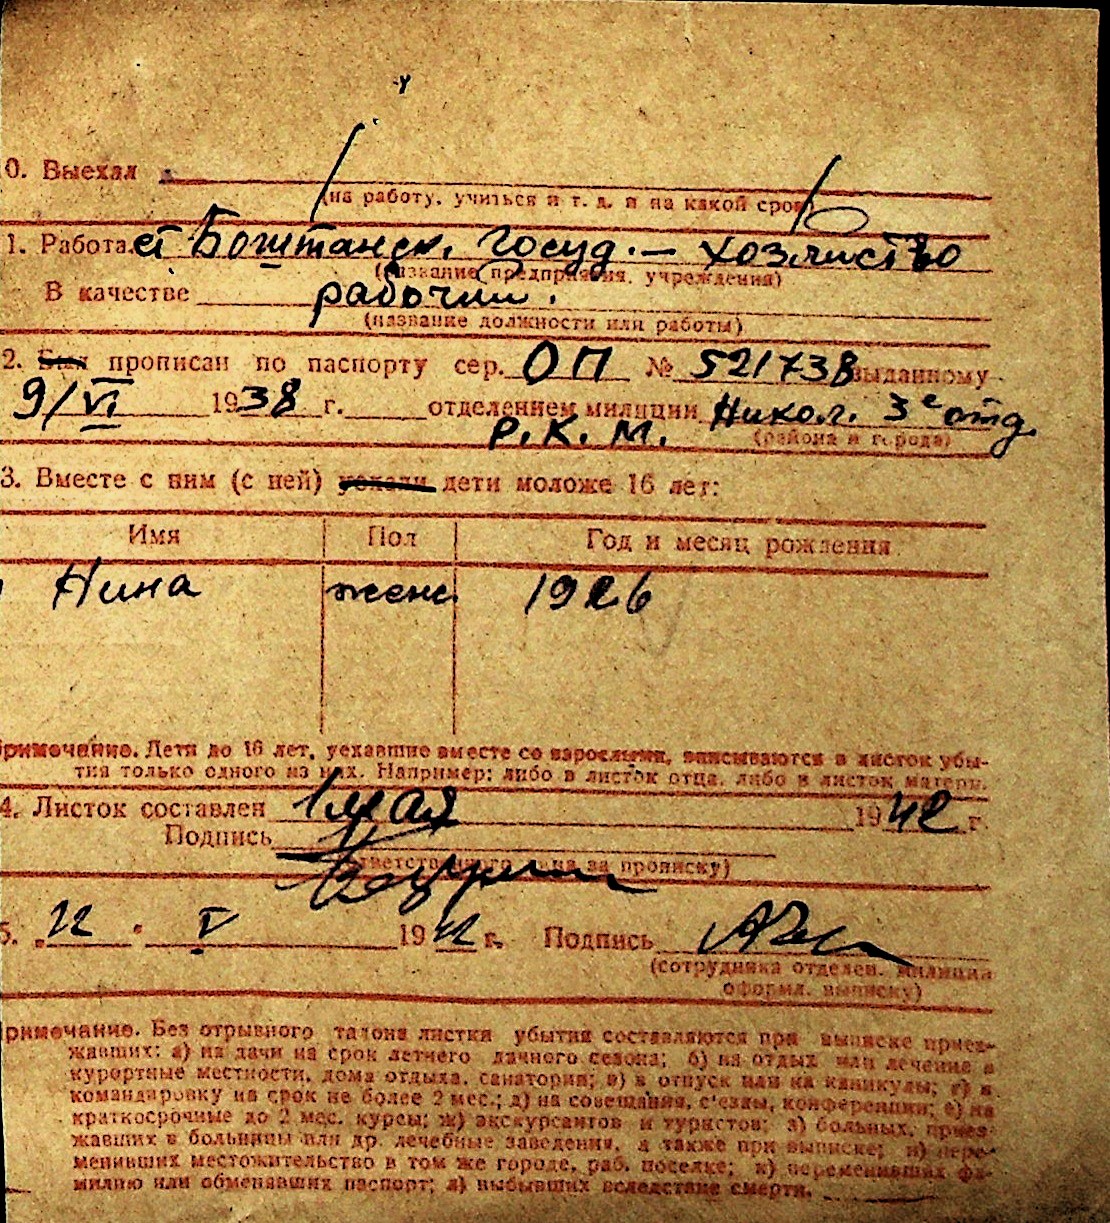 0. Выехал
(на работу, учиться и т. д. и на какой срок)
1. Работа ст Боштанск. Госуд. — хозяйство
(название предприятия, учреждения)
В качестве рабочий.
(название должности или работы)
2. Был прописан по паспорту сер. ОП № 521738 выданному
9/VI 1938 г. отделением милиции Никол. 3е отд.
Р. К. М. (района и города)
3. Вместе с ним (с ней) уехали дети моложе 16 лет:
Имя Пол Год и месяц рождения
Нина женс. 1926
Примечание. Дети до 16 лет, уехавшие вместе со взрослыми, вписываются в листок убы-
тия только одного из них. Например: либо в листок отца, либо в листок матери.
4. Листок составлен 1 мая 1942 г.
Подпись
(ответственного лица за прописку)
5. „12 " V 1942 г. Подпись
(сотрудника отделен. милиции
оформл. выписку)
римечание. Без отрывного талона листки убытия составляются при выписке приез-
жавших: а) на дачи на срок летнего дачного сезона; б) на отдых или лечение в
курортные местности, дома отдыха, санатории; в) в отпуск или на каникулы; г) в
командировку на срок не более 2 мес.; д) на совещания, с'езды, конференции; е) на
краткосрочные до 2 мес. курсы; ж) экскурсантов и туристов; з) больных, приез-
жавших в больницы или др. лечебные заведения, а также при выписке; и) пере-
менивших местожительство в том же городе, раб. поселке; к) переменивших фа-
милию или обменявших паспорт; л) выбывших вследствие смерти.